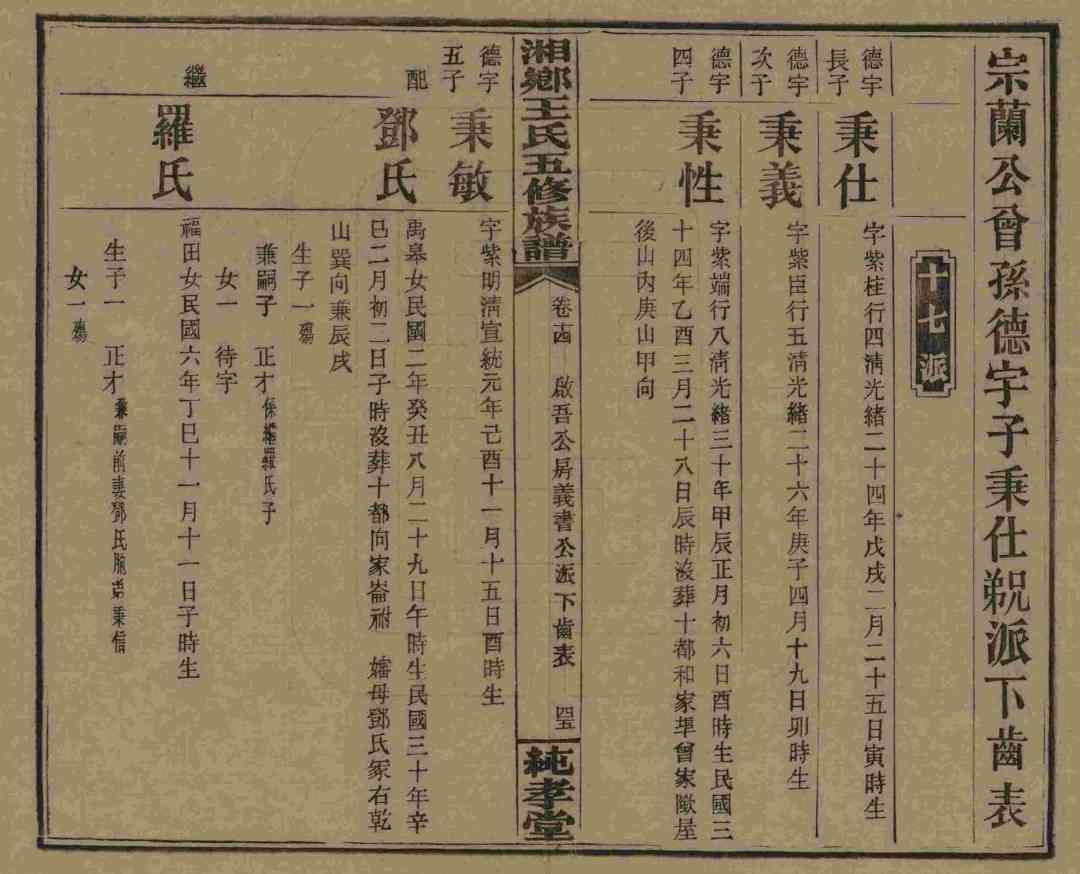 宗蘭公曾孫德宇子秉仕派下齒表
十七派
德宇
長子
秉仕
字紫桂行四清光緒二十四年戊戌二月二十五日寅時生
德宇
次子
秉義
字紫臣行五清光緒二十六年庚子四月十九日卯時生
德宇
四子
秉性
字紫端行八清光緒三十年甲辰正月初六日酉時生民國三
十四年乙酉三月二十八日辰時沒葬十都和家埠曾家歐屋
後山內庚山甲向
湘鄉王氏五修族譜
卷十四 啟吾公房義書公派下齒表 四五
純孝堂
德宇
五子
秉敏
字紫明清宣統元年己酉十一月十五日酉時生
配
鄧氏
禹皋女民國二年癸丑八月二十九日午時生民國三十年辛
巳二月初二日子時沒葬十都向家崙祔 嬸母鄧氏冢右乾
山巽向兼辰戌
生子一殤
兼嗣子 正才係繼羅氏子
女一 待字
繼
羅氏
福田女民國六年丁巳十一月十一日子時生
生子一 正才兼嗣前妻鄧氏胞弟秉信
女一殤